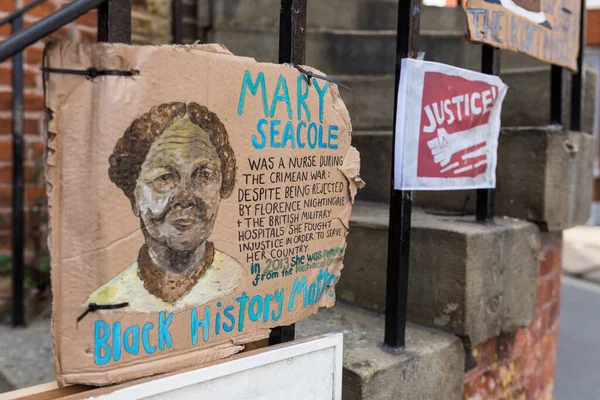 MARY
SEACOLE
WAS A NURSE DURING
THE CRIMEAN WAR:
DESPITE BEING REJECTED
BY FLORENCE NIGHTINGALE
+ THE BRITISH MILITARY
HOSPITALS SHE FOUGHT
INJUSTICE IN ORDER TO SERVE
HER COUNTRY.
in 2013 she was
from the National
Black History Matte
JUSTICE!
THE